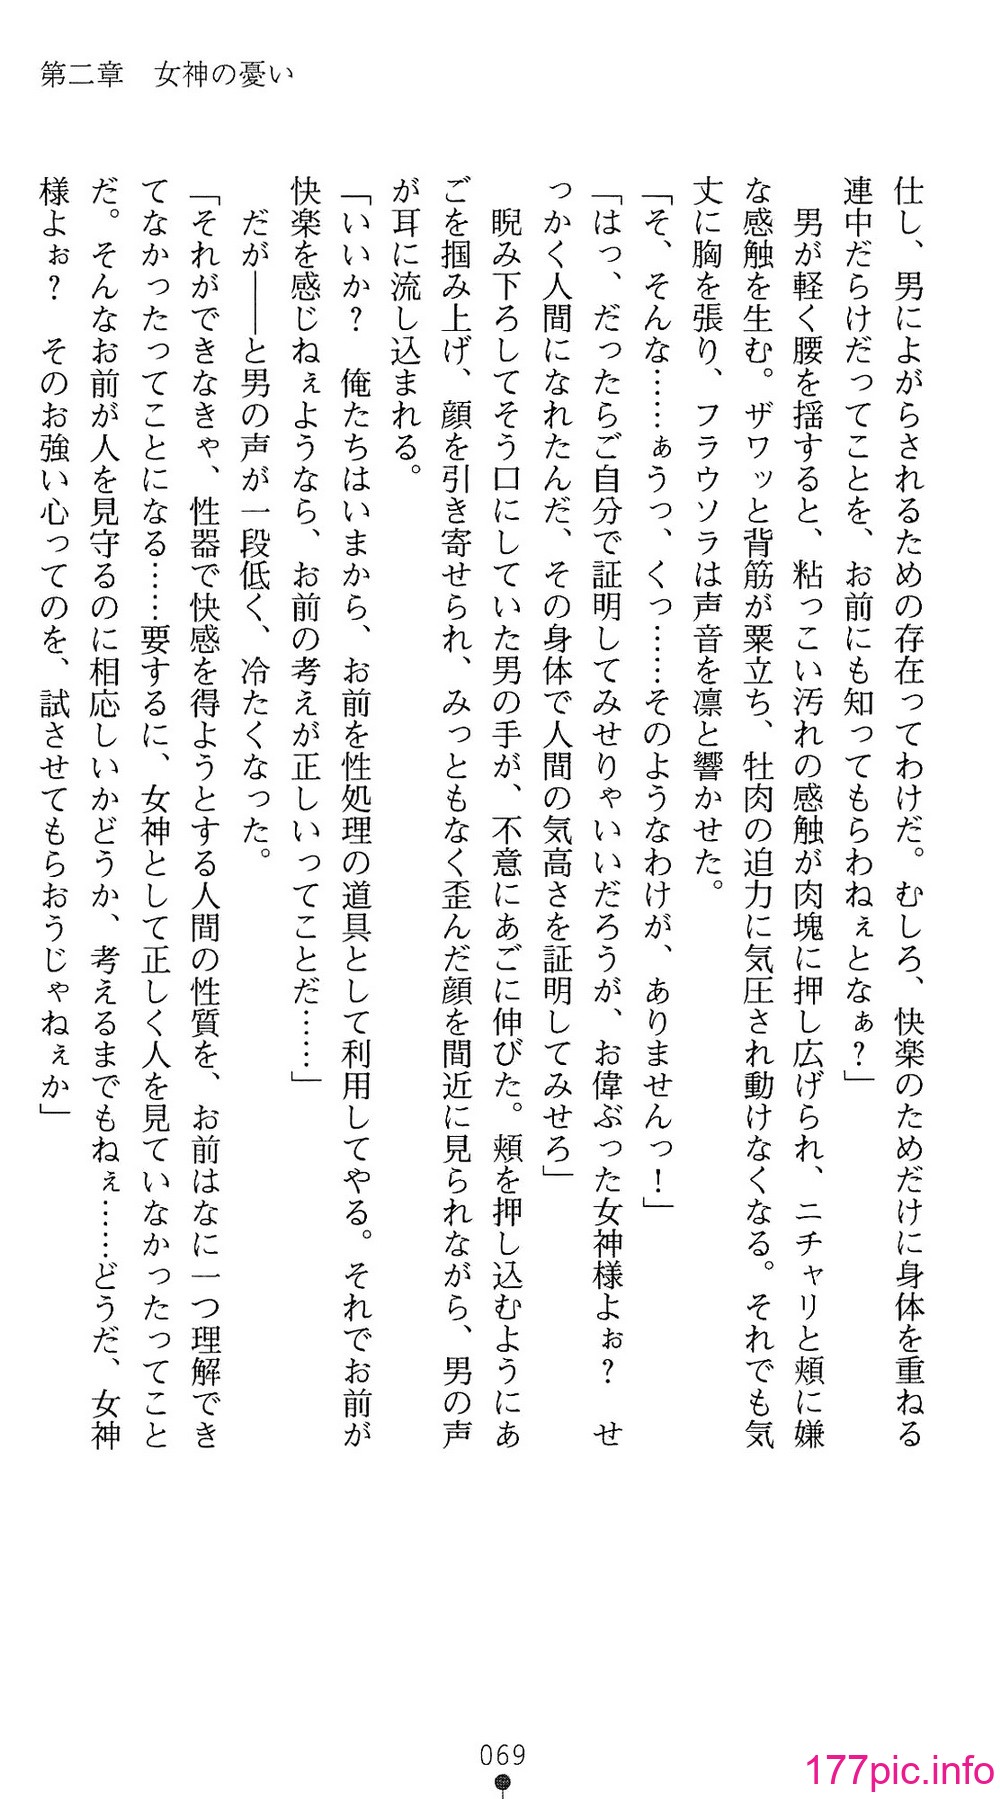 第二章　女神の憂い
仕し、男によがらされるための存在ってわけだ。むしろ、快楽のためだけに身体を重ねる
連中だらけだってことを、お前にも知ってもらわねぇとなぁ?」
　男が軽く腰を揺すると、粘っこい汚れの感触が肉塊に押し広げられ、ニチャリと頬に嫌
な感触を生む。ザワッと背筋が粟立ち、牡肉の迫力に気圧され動けなくなる。それでも気
丈に胸を張り、フラウソラは声音を凛と響かせた。
「そ、そんな……ぁうっ、くっ……そのようなわけが、ありませんっ！」
「はっ、だったらご自分で証明してみせりゃいいだろうが、お偉ぶった女神様よぉ?　せ
っかく人間になれたんだ、その身体で人間の気高さを証明してみせろ」
　睨み下ろしてそう口にしていた男の手が、不意にあごに伸びた。頬を押し込むようにあ
ごを掴み上げ、顔を引き寄せられ、みっともなく歪んだ顔を間近に見られながら、男の声
が耳に流し込まれる。
「いいか?　俺たちはいまから、お前を性処理の道具として利用してやる。それでお前が
快楽を感じねぇようなら、お前の考えが正しいってことだ……」
　だが――と男の声が一段低く、冷たくなった。
「それができなきゃ、性器で快感を得ようとする人間の性質を、お前はなに一つ理解でき
てなかったってことになる……要するに、女神として正しく人を見ていなかったってこと
だ。そんなお前が人を見守るのに相応しいかどうか、考えるまでもねぇ……どうだ、女神
様よぉ?　そのお強い心ってのを、試させてもらおうじゃねぇか」
069
177pic.info